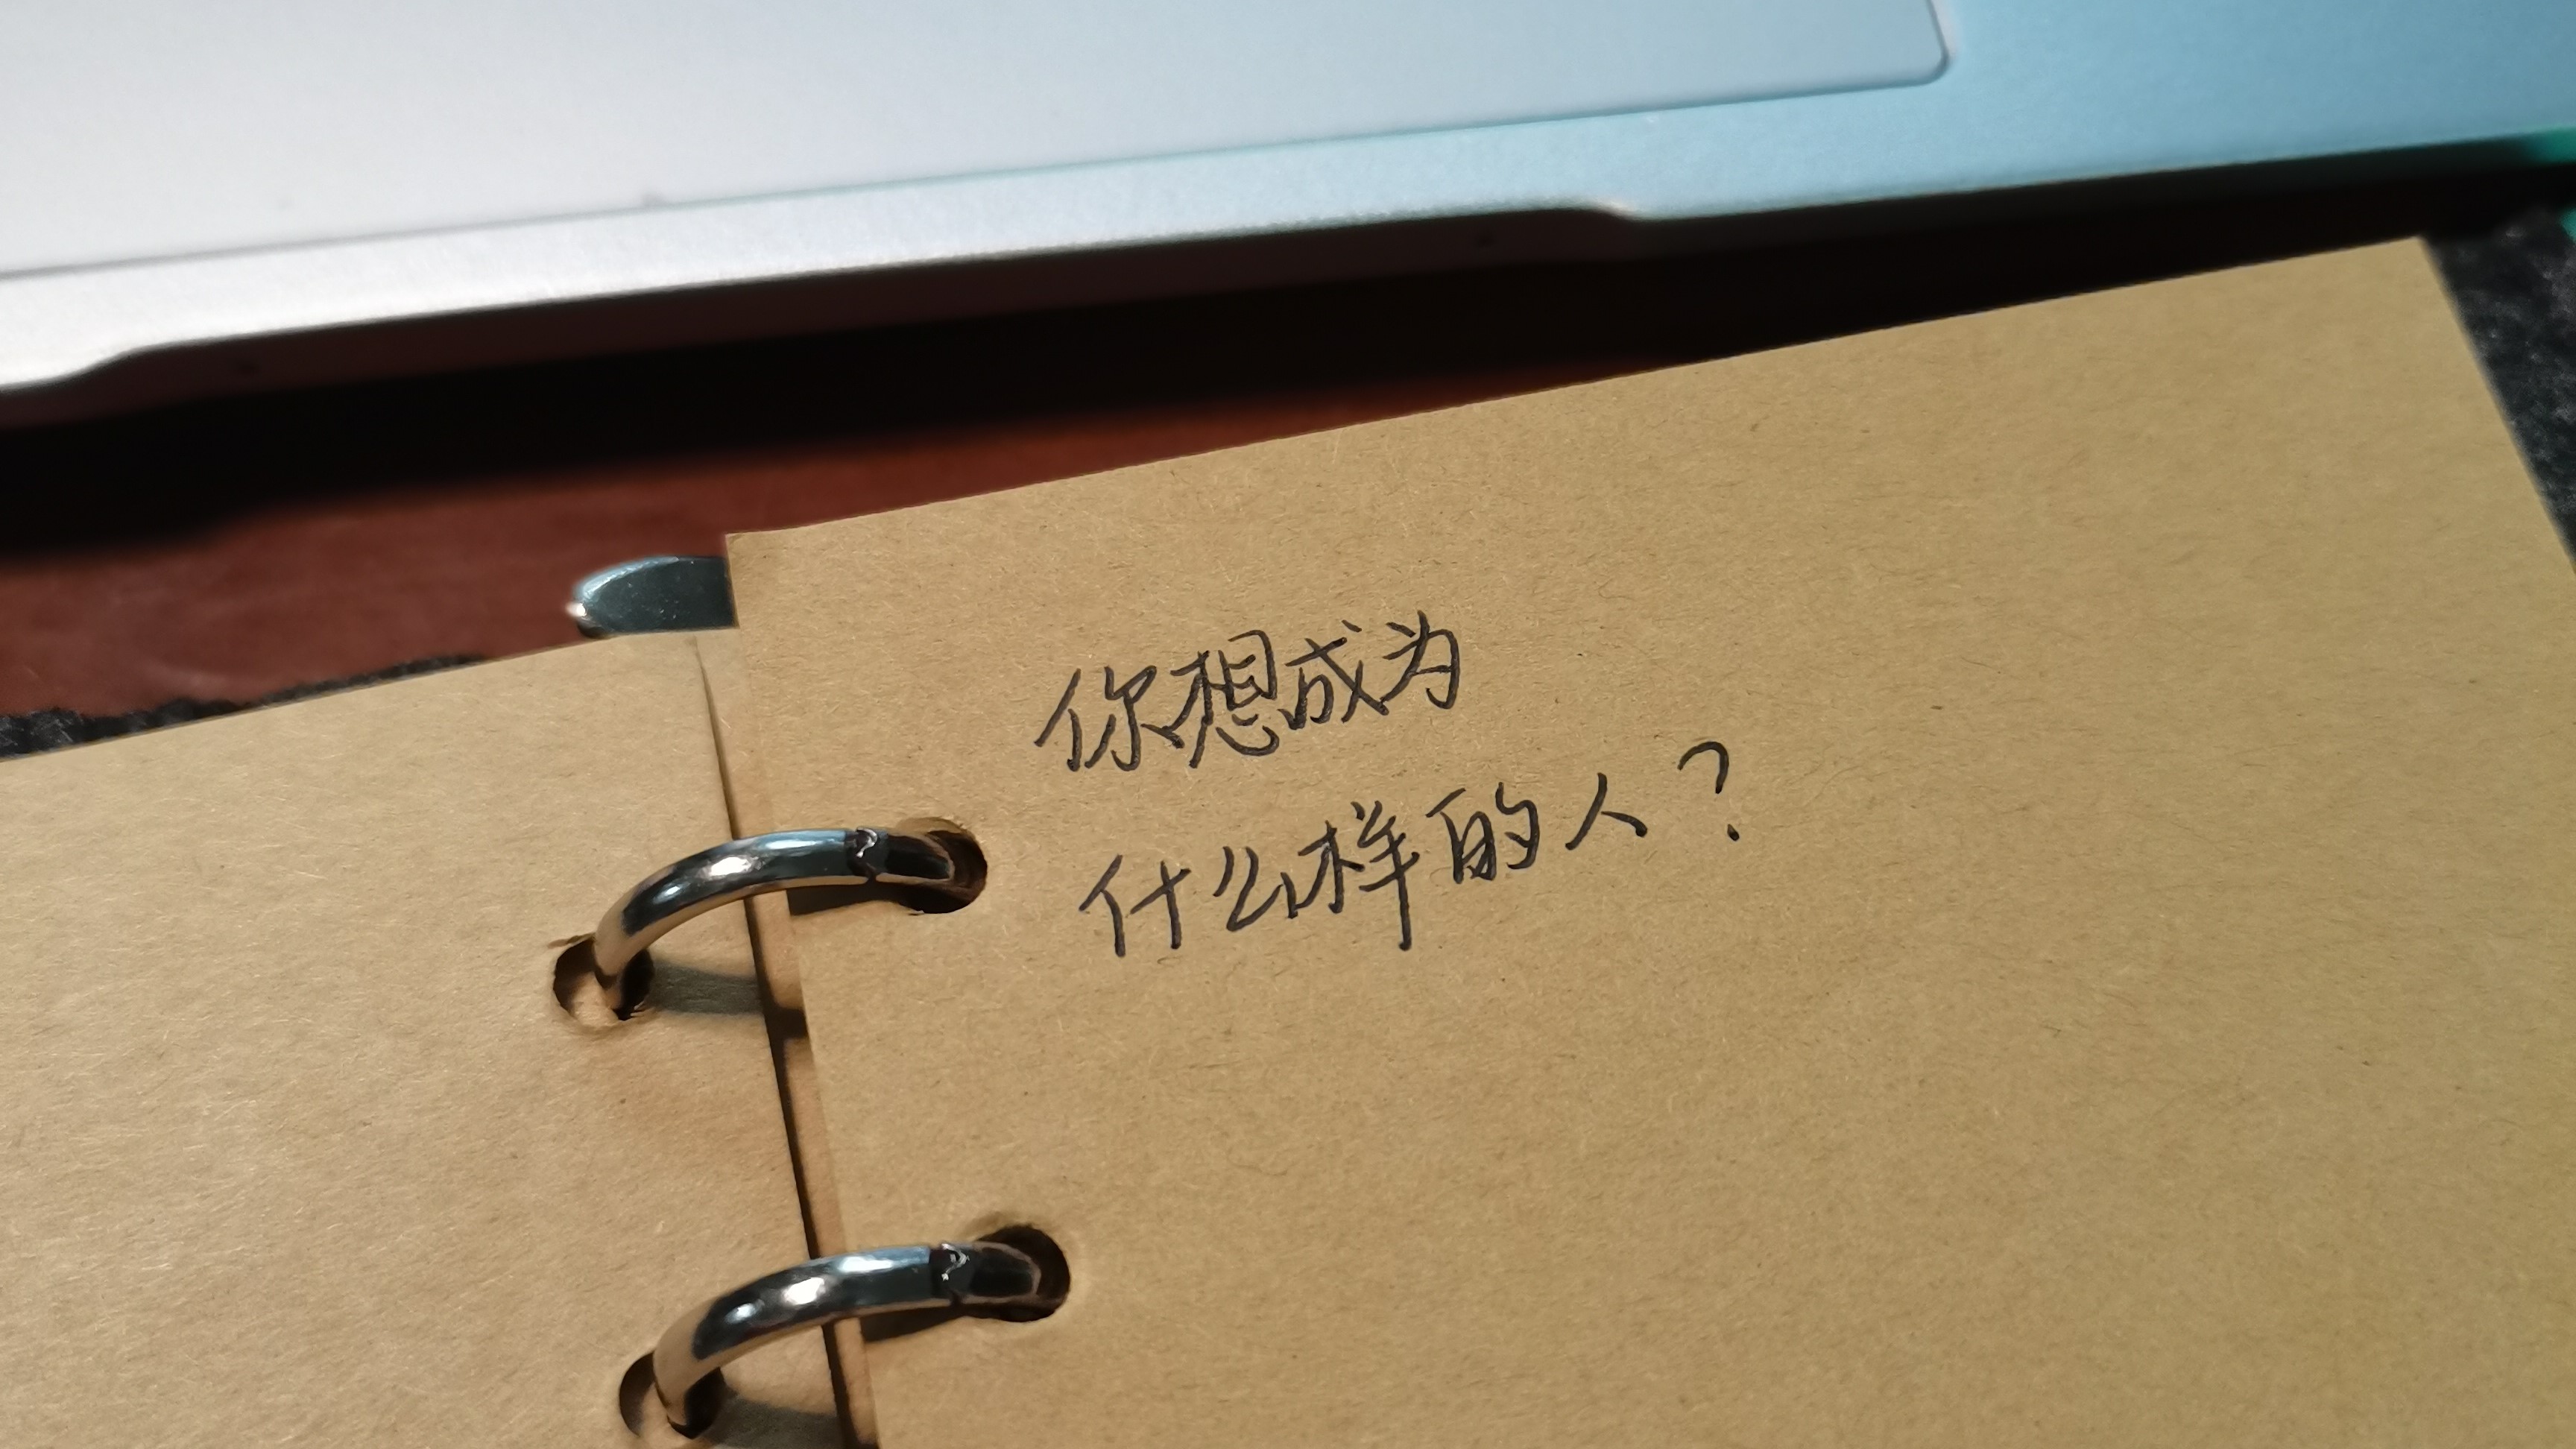 你想成为
什么样的人？